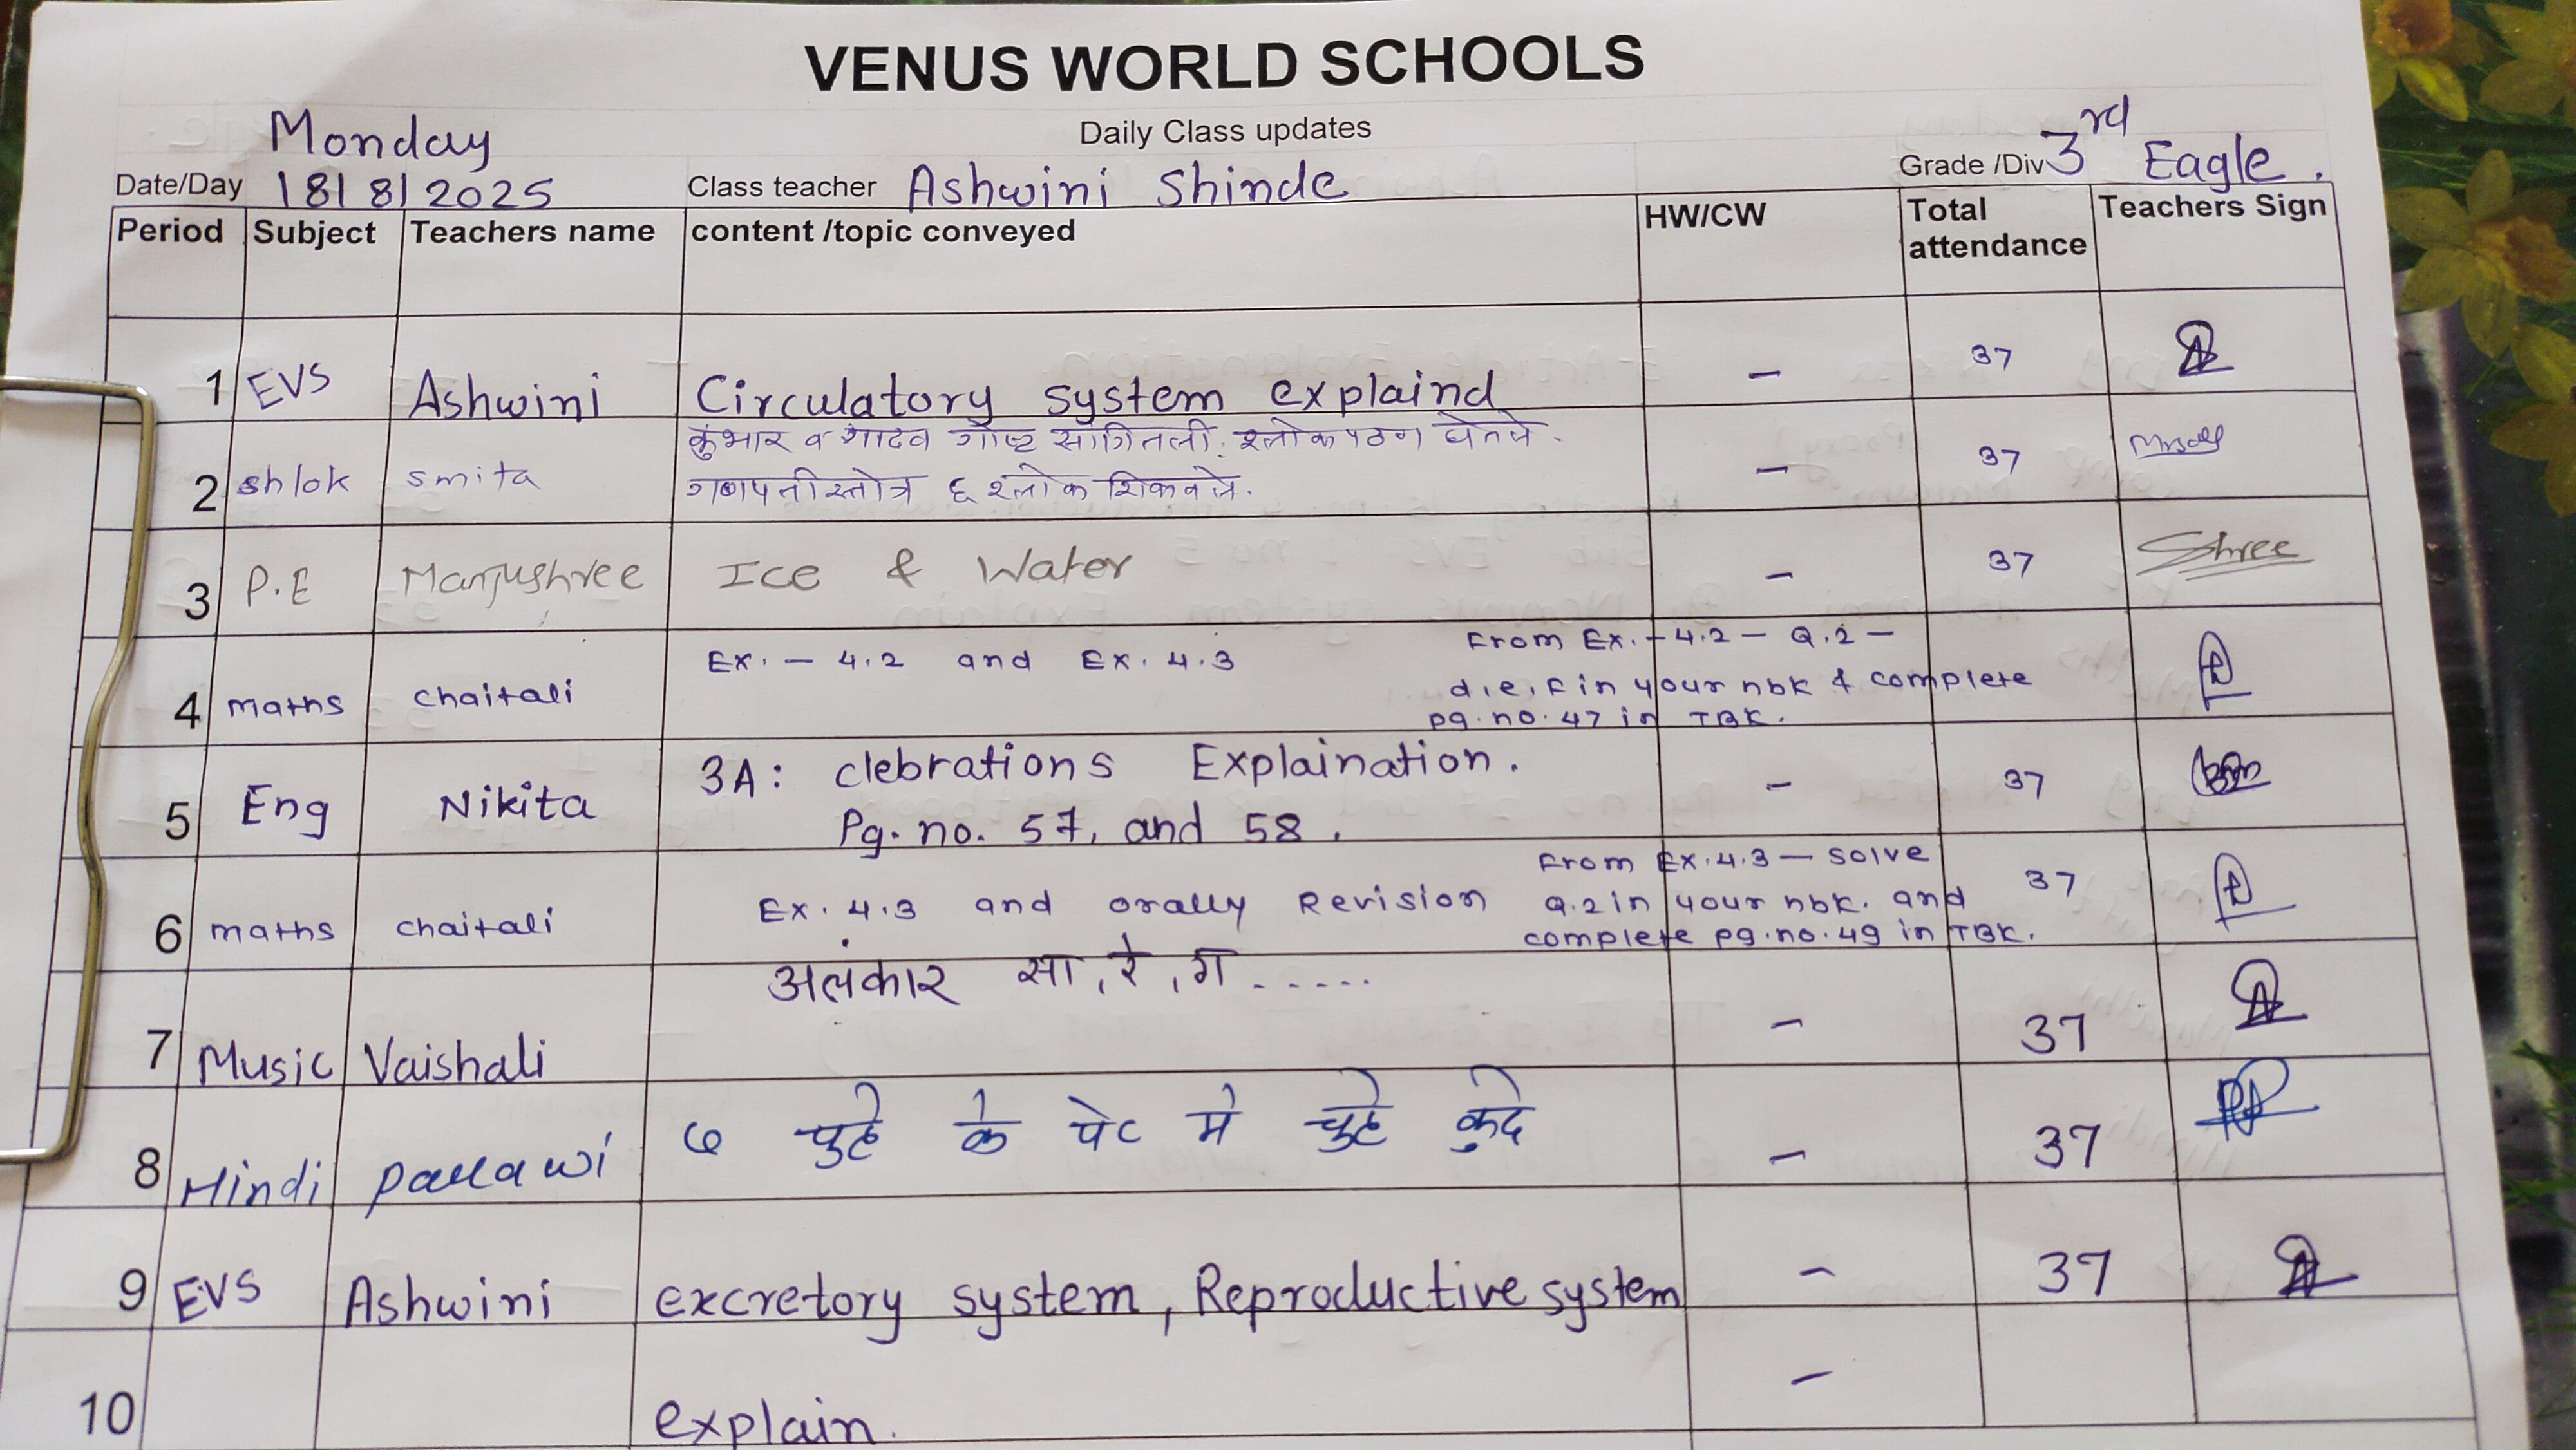 VENUS WORLD SCHOOLS
Daily Class updates
Monday
Date/Day 18/8/2025 Class teacher Ashwini Shinde Grade /Div 3rd Eagle.
Period Subject Teachers name content /topic conveyed HW/CW Total attendance Teachers Sign
1 EVS Ashwini Circulatory system explaind - 37
2 shlok smita कुंभार व गाढव गोष्ट सांगितली. श्लोक पठण घेतले. - 37
गणपतीस्तोत्र ६ श्लोक शिकवले.
3 P.E Manjushree Ice & Water - 37 Shree
4 maths chaitali Ex. - 4.2 and Ex. 4.3 From Ex. - 4.2 - Q.2 -
d, e, f in your nbk & complete
pg. no. 47 in TBK.
5 Eng Nikita 3A: clebrations Explaination. - 37
Pg. no. 57, and 58.
6 maths chaitali Ex. 4.3 and orally Revision From Ex. 4.3 - solve 37
Q.2 in your nbk. and
complete pg. no. 49 in TBK.
7 Music Vaishali अलंकार सा, रे, ग ...... - 37
8 Hindi pallawi ७ चुहे के पेट मे चुहे कुदे - 37
9 EVS Ashwini excretory system, Reproductive system - 37
10 explain. -